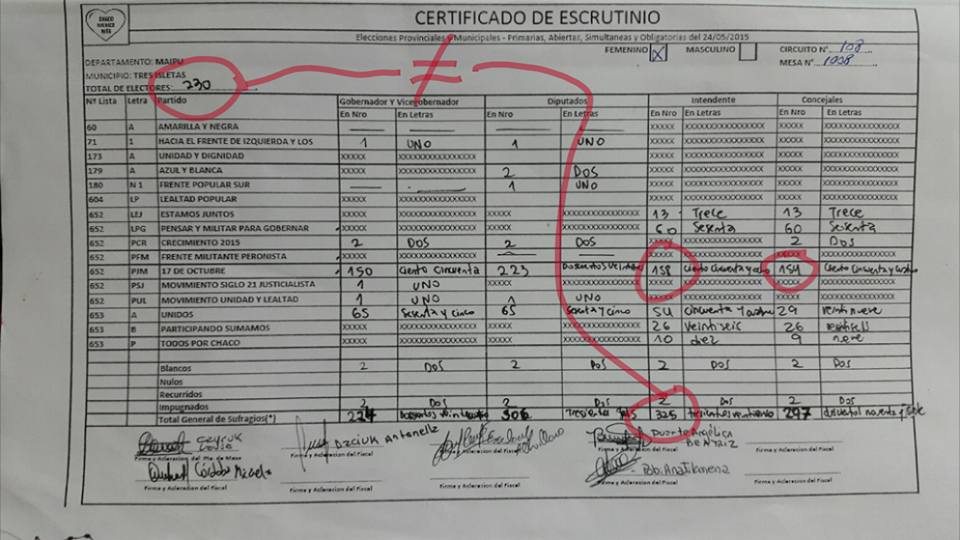 CHACO MERECE MÁS
CERTIFICADO DE ESCRUTINIO
Elecciones Provinciales y Municipales - Primarias, Abiertas, Simultaneas y Obligatorias del 24/05/2015
FEMENINO X MASCULINO CIRCUITO N° 108
DEPARTAMENTO: MAIPU MESA N° 1008
MUNICIPIO: TRES ISLETAS
TOTAL DE ELECTORES: 230
Nº Lista Letra Partido Gobernador y Vicegobernador Diputados Intendente Concejales
En Nro En Letras En Nro En Letras En Nro En Letras En Nro En Letras
60 A AMARILLA Y NEGRA XXXXX XXXXXXXXXXXXXXXX XXXXX XXXXXXXXXXXXXXXX
71 1 HACIA EL FRENTE DE IZQUIERDA Y LOS 1 UNO 1 UNO XXXXX XXXXXXXXXXXXXXXX XXXXX XXXXXXXXXXXXXXXX
173 A UNIDAD Y DIGNIDAD XXXXX XXXXXXXXXXXXXXXX XXXXX XXXXXXXXXXXXXXXX XXXXX XXXXXXXXXXXXXXXX
179 A AZUL Y BLANCA XXXXX XXXXXXXXXXXXXXXX 2 DOS XXXXX XXXXXXXXXXXXXXXX XXXXX XXXXXXXXXXXXXXXX
180 N 1 FRENTE POPULAR SUR 1 UNO XXXXX XXXXXXXXXXXXXXXX XXXXX XXXXXXXXXXXXXXXX
604 LP LEALTAD POPULAR XXXXX XXXXXXXXXXXXXXXX XXXXX XXXXXXXXXXXXXXXX XXXXX XXXXXXXXXXXXXXXX
652 LEJ ESTAMOS JUNTOS XXXXX XXXXXXXXXXXXXXXX XXXXX XXXXXXXXXXXXXXXX 13 Trece 13 Trece
652 LPG PENSAR Y MILITAR PARA GOBERNAR XXXXX XXXXXXXXXXXXXXXX XXXXX XXXXXXXXXXXXXXXX 60 Sesenta 60 Sesenta
652 PCR CRECIMIENTO 2015 2 DOS 2 DOS XXXXX XXXXXXXXXXXXXXXX 2 Dos
652 PFM FRENTE MILITANTE PERONISTA XXXXX XXXXXXXXXXXXXXXX XXXXX XXXXXXXXXXXXXXXX
652 PJM 17 DE OCTUBRE 150 Ciento Cincuenta 223 158 154
652 PSJ MOVIMIENTO SIGLO 21 JUSTICIALISTA 1 UNO XXXXX XXXXXXXXXXXXXXXX XXXXX XXXXXXXXXXXXXXXX XXXXX XXXXXXXXXXXXXXXX
652 PUL MOVIMIENTO UNIDAD Y LEALTAD 1 UNO 1 UNO XXXXX XXXXXXXXXXXXXXXX XXXXX XXXXXXXXXXXXXXXX
653 A UNIDOS 65 Sesenta y cinco 65 Sesenta y cinco 54 29 veintinueve
653 B PARTICIPANDO SUMAMOS XXXXX XXXXXXXXXXXXXXXX XXXXX XXXXXXXXXXXXXXXX 26 veintiseis 26
653 P TODOS POR CHACO XXXXX XXXXXXXXXXXXXXXX XXXXX XXXXXXXXXXXXXXXX 10 diez 9
Blancos 2 Dos 2 Dos 2 Dos 2 Dos
Nulos
Recurridos
Impugnados 2 Dos 2 Dos 2 Dos 2 Dos
Total General de Sufragios(*) 224 306 325 297
Dziuk Antonella Duarte Angélica Beatriz
Firma y Aclaracion del Pte. de Mesa Firma y Aclaracion del Fiscal Firma y Aclaracion del Fiscal Firma y Aclaracion del Fiscal Firma y Aclaracion del Fiscal
Firma y Aclaracion del Fiscal Firma y Aclaracion del Fiscal Firma y Aclaracion del Fiscal Firma y Aclaracion del Fiscal Firma y Aclaracion del Fiscal